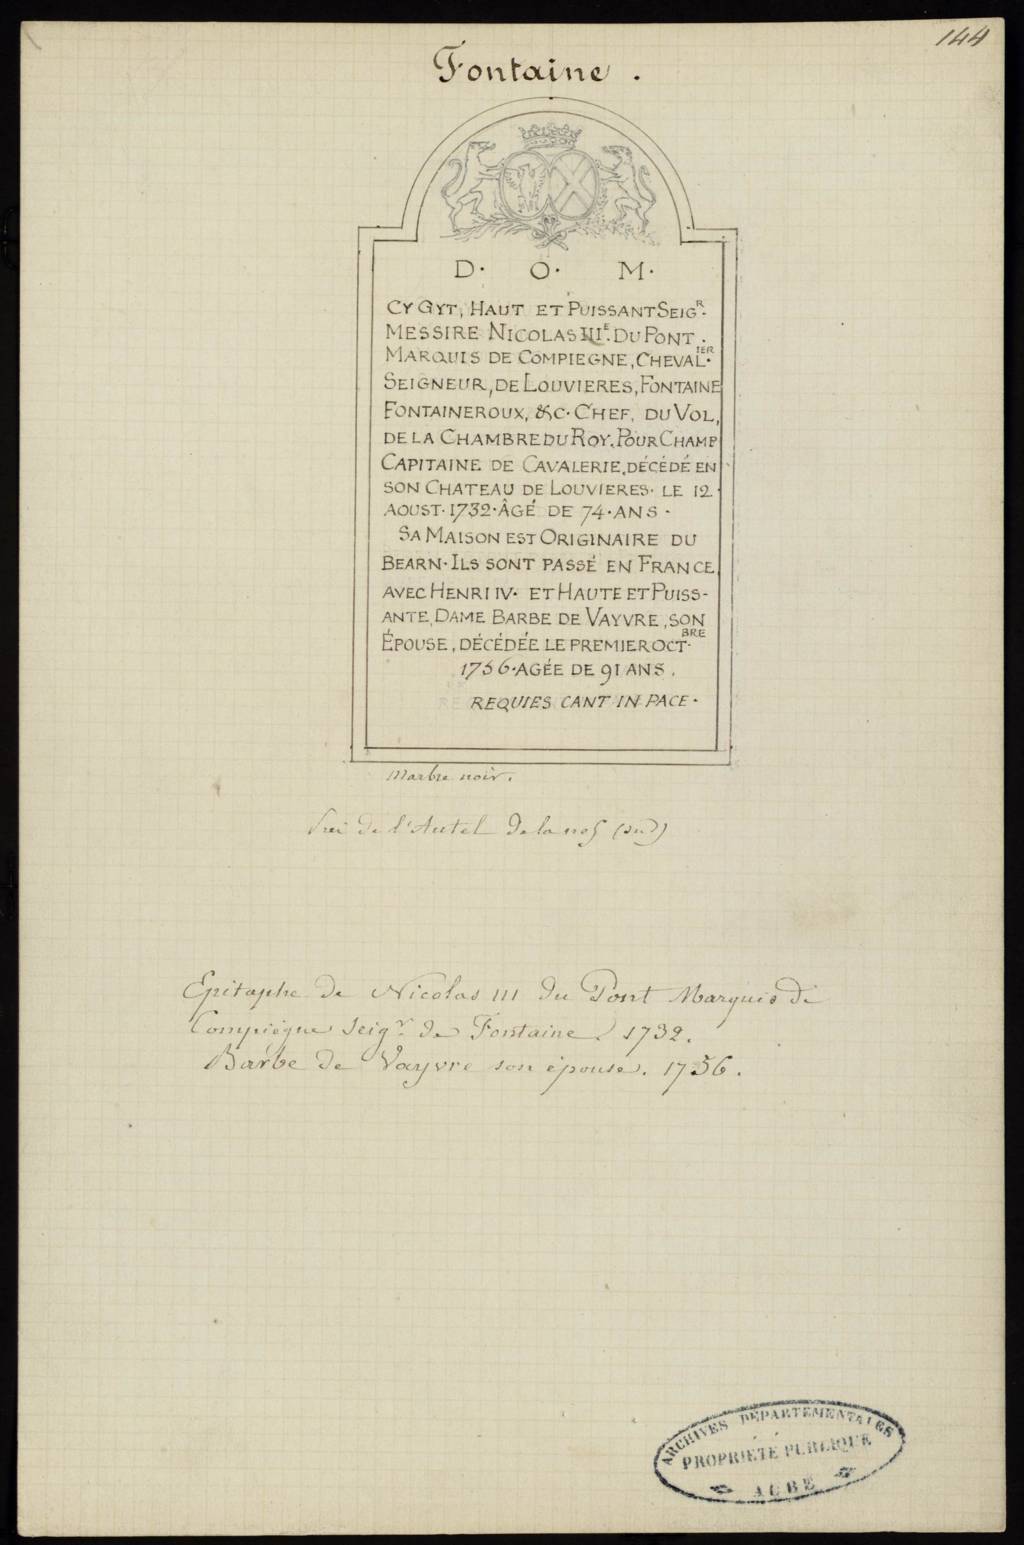 144
Fontaine.
D. O. M.
CY GYT, HAUT ET PUISSANT SEIGR.
MESSIRE NICOLAS IIIE. DU PONT.
MARQUIS DE COMPIEGNE, CHEVALIER.
SEIGNEUR, DE LOUVIERES, FONTAINE
FONTAINEROUX, &C. CHEF, DU VOL,
DE LA CHAMBRE DU ROY. POUR CHAMP
CAPITAINE DE CAVALERIE, DÉCÉDÉ EN
SON CHATEAU DE LOUVIERES. LE 12.
AOUST. 1732. ÂGÉ DE 74. ANS.
SA MAISON EST ORIGINAIRE DU
BEARN. ILS SONT PASSÉ EN FRANCE,
AVEC HENRI IV. ET HAUTE ET PUISS-
ANTE, DAME BARBE DE VAYVRE, SON
ÉPOUSE, DÉCÉDÉE LE PREMIER OCT.BRE
1756. AGÉE DE 91 ANS.
REQUIES CANT IN PACE.
Marbre noir.
de l'Autel de la nef (sud)
Epitaphe de Nicolas III du Pont Marquis de
Compiègne Seigr de Fontaine. 1732.
Barbe de Vayvre son épouse. 1756.
ARCHIVES DÉPARTEMENTALES
PROPRIÉTÉ PUBLIQUE
AUBE